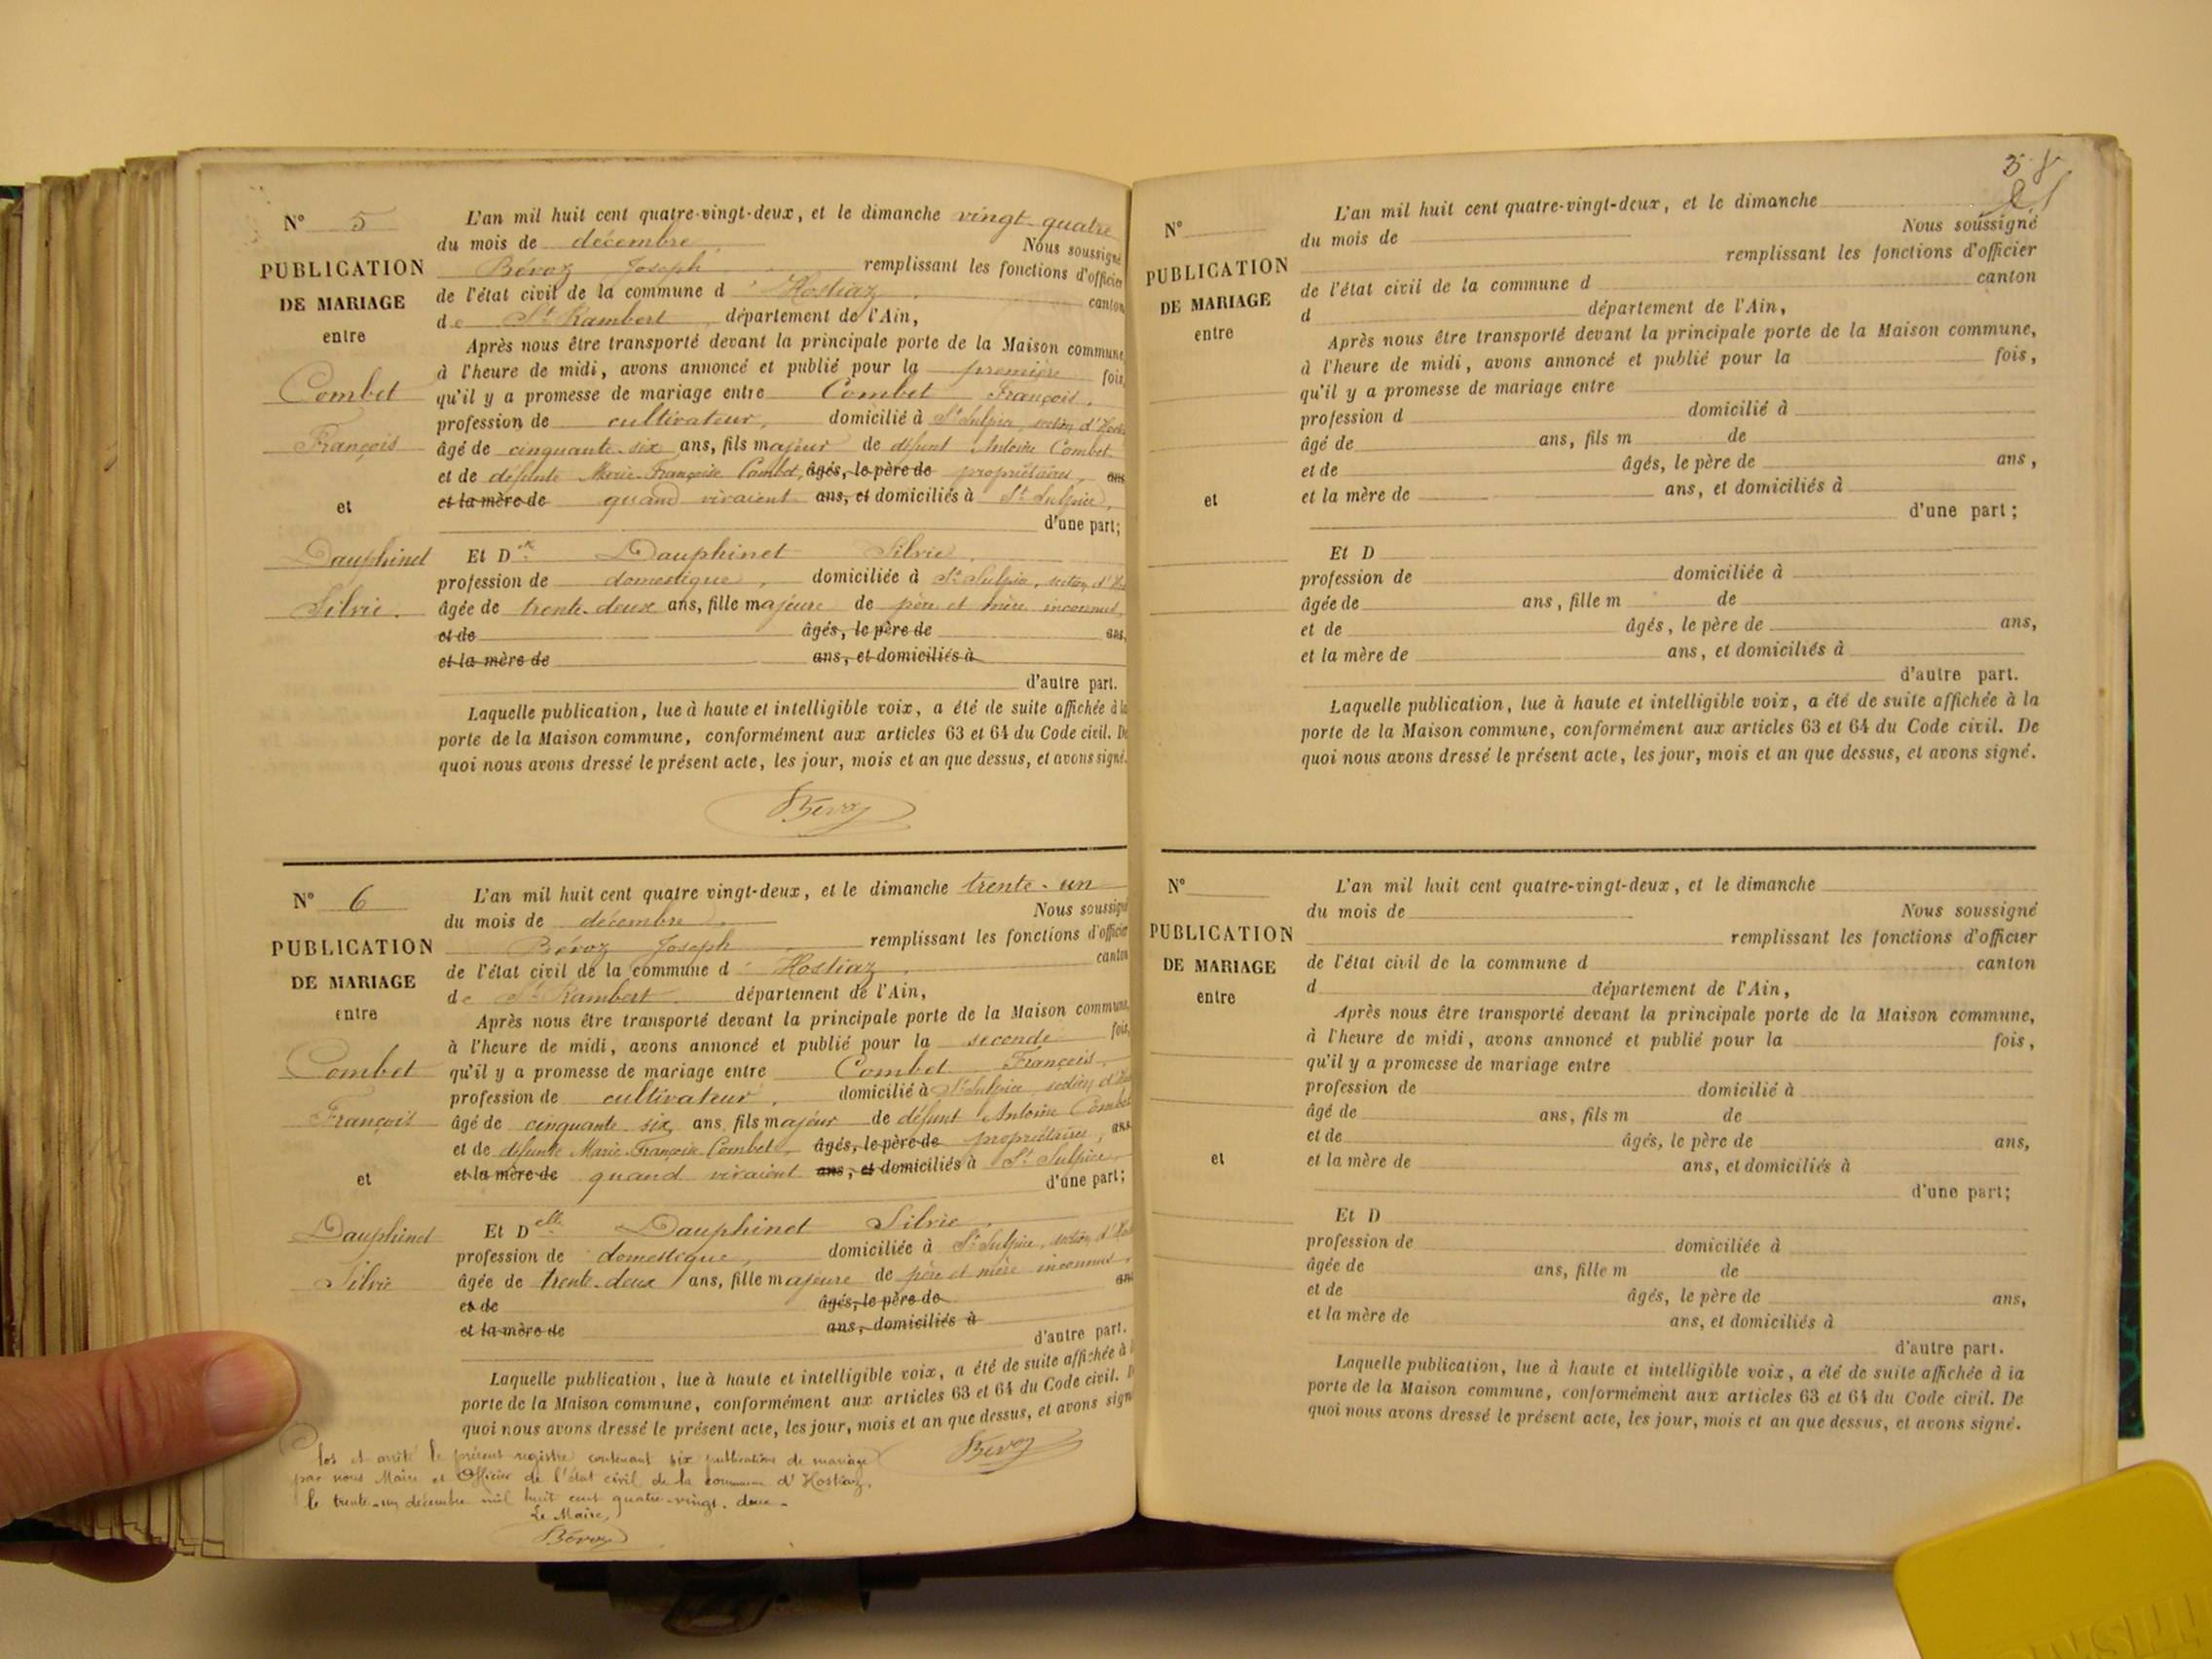 N° 5
PUBLICATION
DE MARIAGE
entre
Combet
François
et
Dauphinet
Silvie.
L'an mil huit cent quatre-vingt-deux, et le dimanche vingt-quatre
du mois de décembre. Nous soussigné
Bévoz Joseph remplissant les fonctions d'officier
de l'état civil de la commune d'Hostiaz canton
de St Rambert, département de l'Ain,
Après nous être transporté devant la principale porte de la Maison commune,
à l'heure de midi, avons annoncé et publié pour la première fois,
qu'il y a promesse de mariage entre Combet François,
profession de cultivateur, domicilié à St Sulpice, section d'
âgé de cinquante-six ans, fils majeur de défunt Antoine Combet
et de défunte Marie-Françoise Combet, âgés, le père de propriétaires, ans
et la mère de quand vivaient ans, et domiciliés à St Sulpice,
d'une part;
Et Delle Dauphinet Silvie,
profession de domestique, domiciliée à St Sulpice, section d'
âgée de trente-deux ans, fille majeure de père et mère inconnus,
et de âgés, le père de ans,
et la mère de ans, et domiciliés à
d'autre part.
Laquelle publication, lue à haute et intelligible voix, a été de suite affichée à la
porte de la Maison commune, conformément aux articles 63 et 64 du Code civil. De
quoi nous avons dressé le présent acte, les jour, mois et an que dessus, et avons signé.
Bévoz
N° 6
PUBLICATION
DE MARIAGE
entre
Combet
François
et
Dauphinet
Silvie
L'an mil huit cent quatre vingt-deux, et le dimanche trente-un
du mois de décembre. Nous soussigné
Bévoz Joseph remplissant les fonctions d'officier
de l'état civil de la commune d'Hostiaz canton
de St Rambert département de l'Ain,
Après nous être transporté devant la principale porte de la Maison commune,
à l'heure de midi, avons annoncé et publié pour la seconde fois,
qu'il y a promesse de mariage entre Combet François,
profession de cultivateur, domicilié à St Sulpice section d'
âgé de cinquante six ans, fils majeur de défunt Antoine Combet
et de défunte Marie-Françoise Combet, âgés, le père de propriétaires, ans
et la mère de quand vivaient ans, et domiciliés à St Sulpice,
d'une part;
Et Delle Dauphinet Silvie,
profession de domestique, domiciliée à St Sulpice, section d'
âgée de trente-deux ans, fille majeure de père et mère inconnus,
et de âgés, le père de ans
et la mère de ans, domiciliés à
d'autre part.
Laquelle publication, lue à haute et intelligible voix, a été de suite affichée à
porte de la Maison commune, conformément aux articles 63 et 64 du Code civil.
quoi nous avons dressé le présent acte, les jour, mois et an que dessus, et avons signé
Bévoz
Clos et arrêté le présent registre contenant six publications de mariage
par nous Maire et Officier de l'état civil de la commune d'Hostiaz,
le trente-un décembre mil huit cent quatre-vingt-deux.
Le Maire,
Bévoz
N°
PUBLICATION
DE MARIAGE
entre
et
L'an mil huit cent quatre-vingt-deux, et le dimanche
du mois de Nous soussigné
remplissant les fonctions d'officier
de l'état civil de la commune d canton
d département de l'Ain,
Après nous être transporté devant la principale porte de la Maison commune,
à l'heure de midi, avons annoncé et publié pour la fois,
qu'il y a promesse de mariage entre
profession d domicilié à
âgé de ans, fils m de
et de âgés, le père de ans,
et la mère de ans, et domiciliés à
d'une part;
Et D
profession de domiciliée à
âgée de ans, fille m de
et de âgés, le père de ans,
et la mère de ans, et domiciliés à
d'autre part.
Laquelle publication, lue à haute et intelligible voix, a été de suite affichée à la
porte de la Maison commune, conformément aux articles 63 et 64 du Code civil. De
quoi nous avons dressé le présent acte, les jour, mois et an que dessus, et avons signé.
N°
PUBLICATION
DE MARIAGE
entre
et
L'an mil huit cent quatre-vingt-deux, et le dimanche
du mois de Nous soussigné
remplissant les fonctions d'officier
de l'état civil de la commune d canton
d département de l'Ain,
Après nous être transporté devant la principale porte de la Maison commune,
à l'heure de midi, avons annoncé et publié pour la fois,
qu'il y a promesse de mariage entre
profession de domicilié à
âgé de ans, fils m de
et de âgés, le père de ans,
et la mère de ans, et domiciliés à
d'une part;
Et D
profession de domiciliée à
âgée de ans, fille m de
et de âgés, le père de ans,
et la mère de ans, et domiciliés à
d'autre part.
Laquelle publication, lue à haute et intelligible voix, a été de suite affichée à la
porte de la Maison commune, conformément aux articles 63 et 64 du Code civil. De
quoi nous avons dressé le présent acte, les jour, mois et an que dessus, et avons signé.